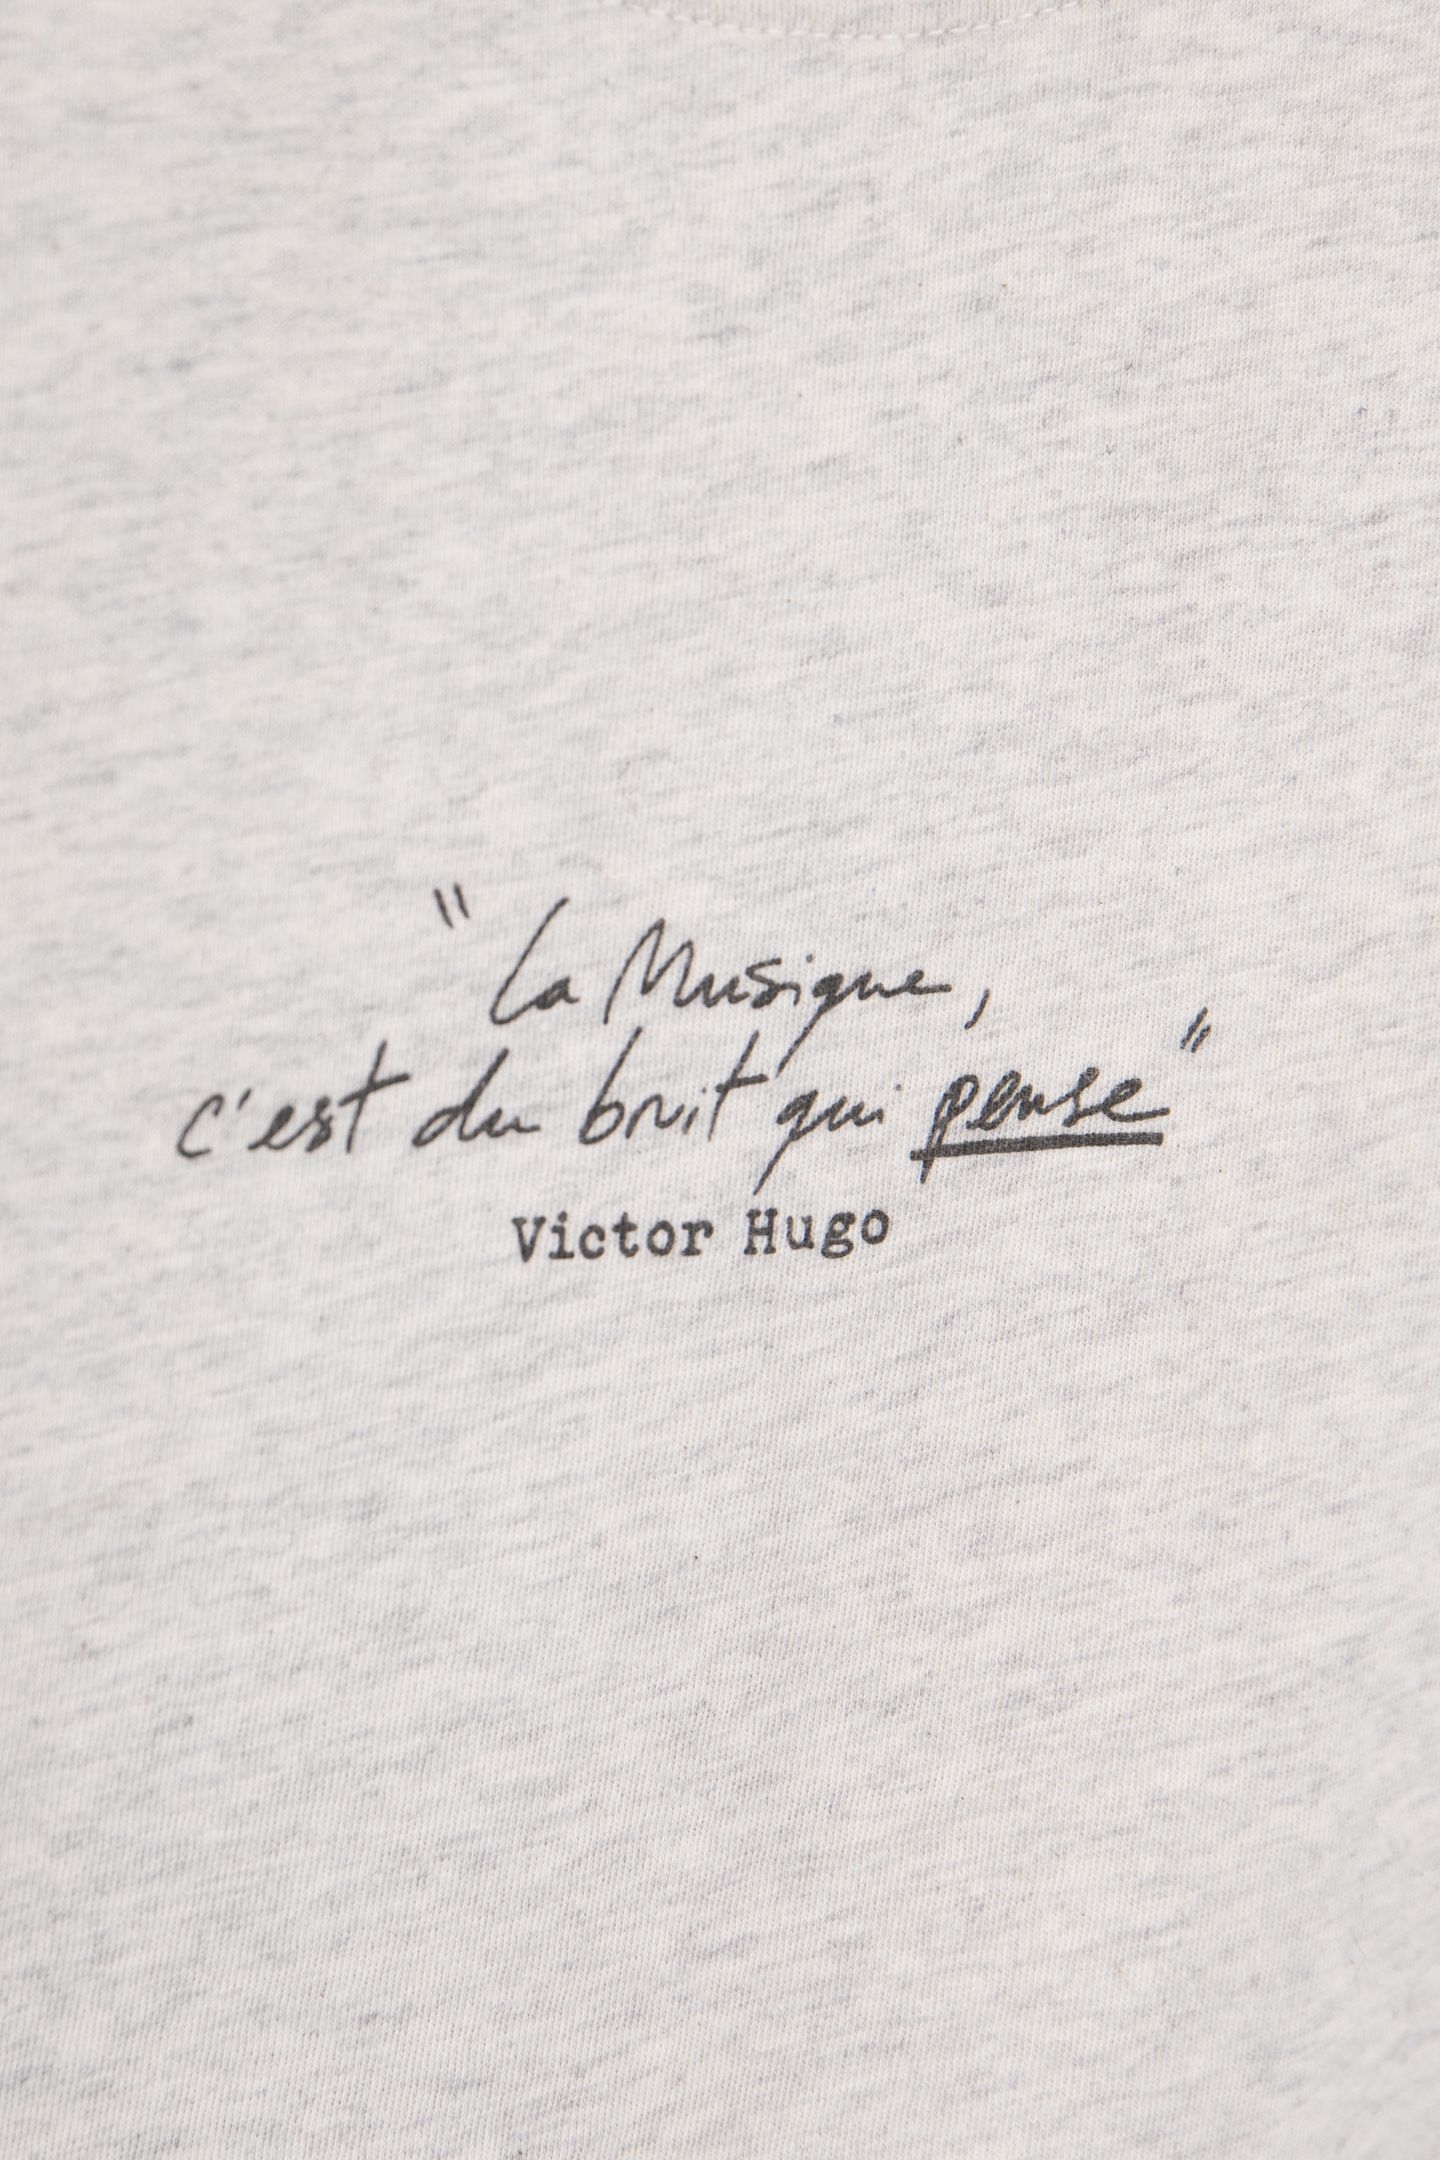 "La Musique,
c'est du bruit qui pense"
Victor Hugo